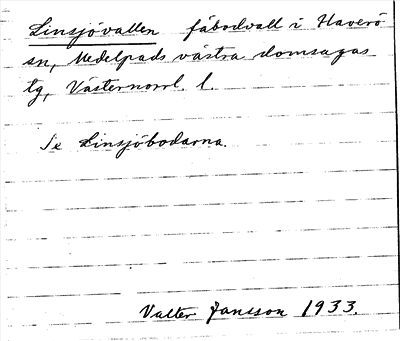 Linsjövallen fäbodvall i Haverö
sn, Medelpads västra domsagas
tg, Västernorrl. l.
Se Linsjöbodarna.
Valter Jansson 1933.